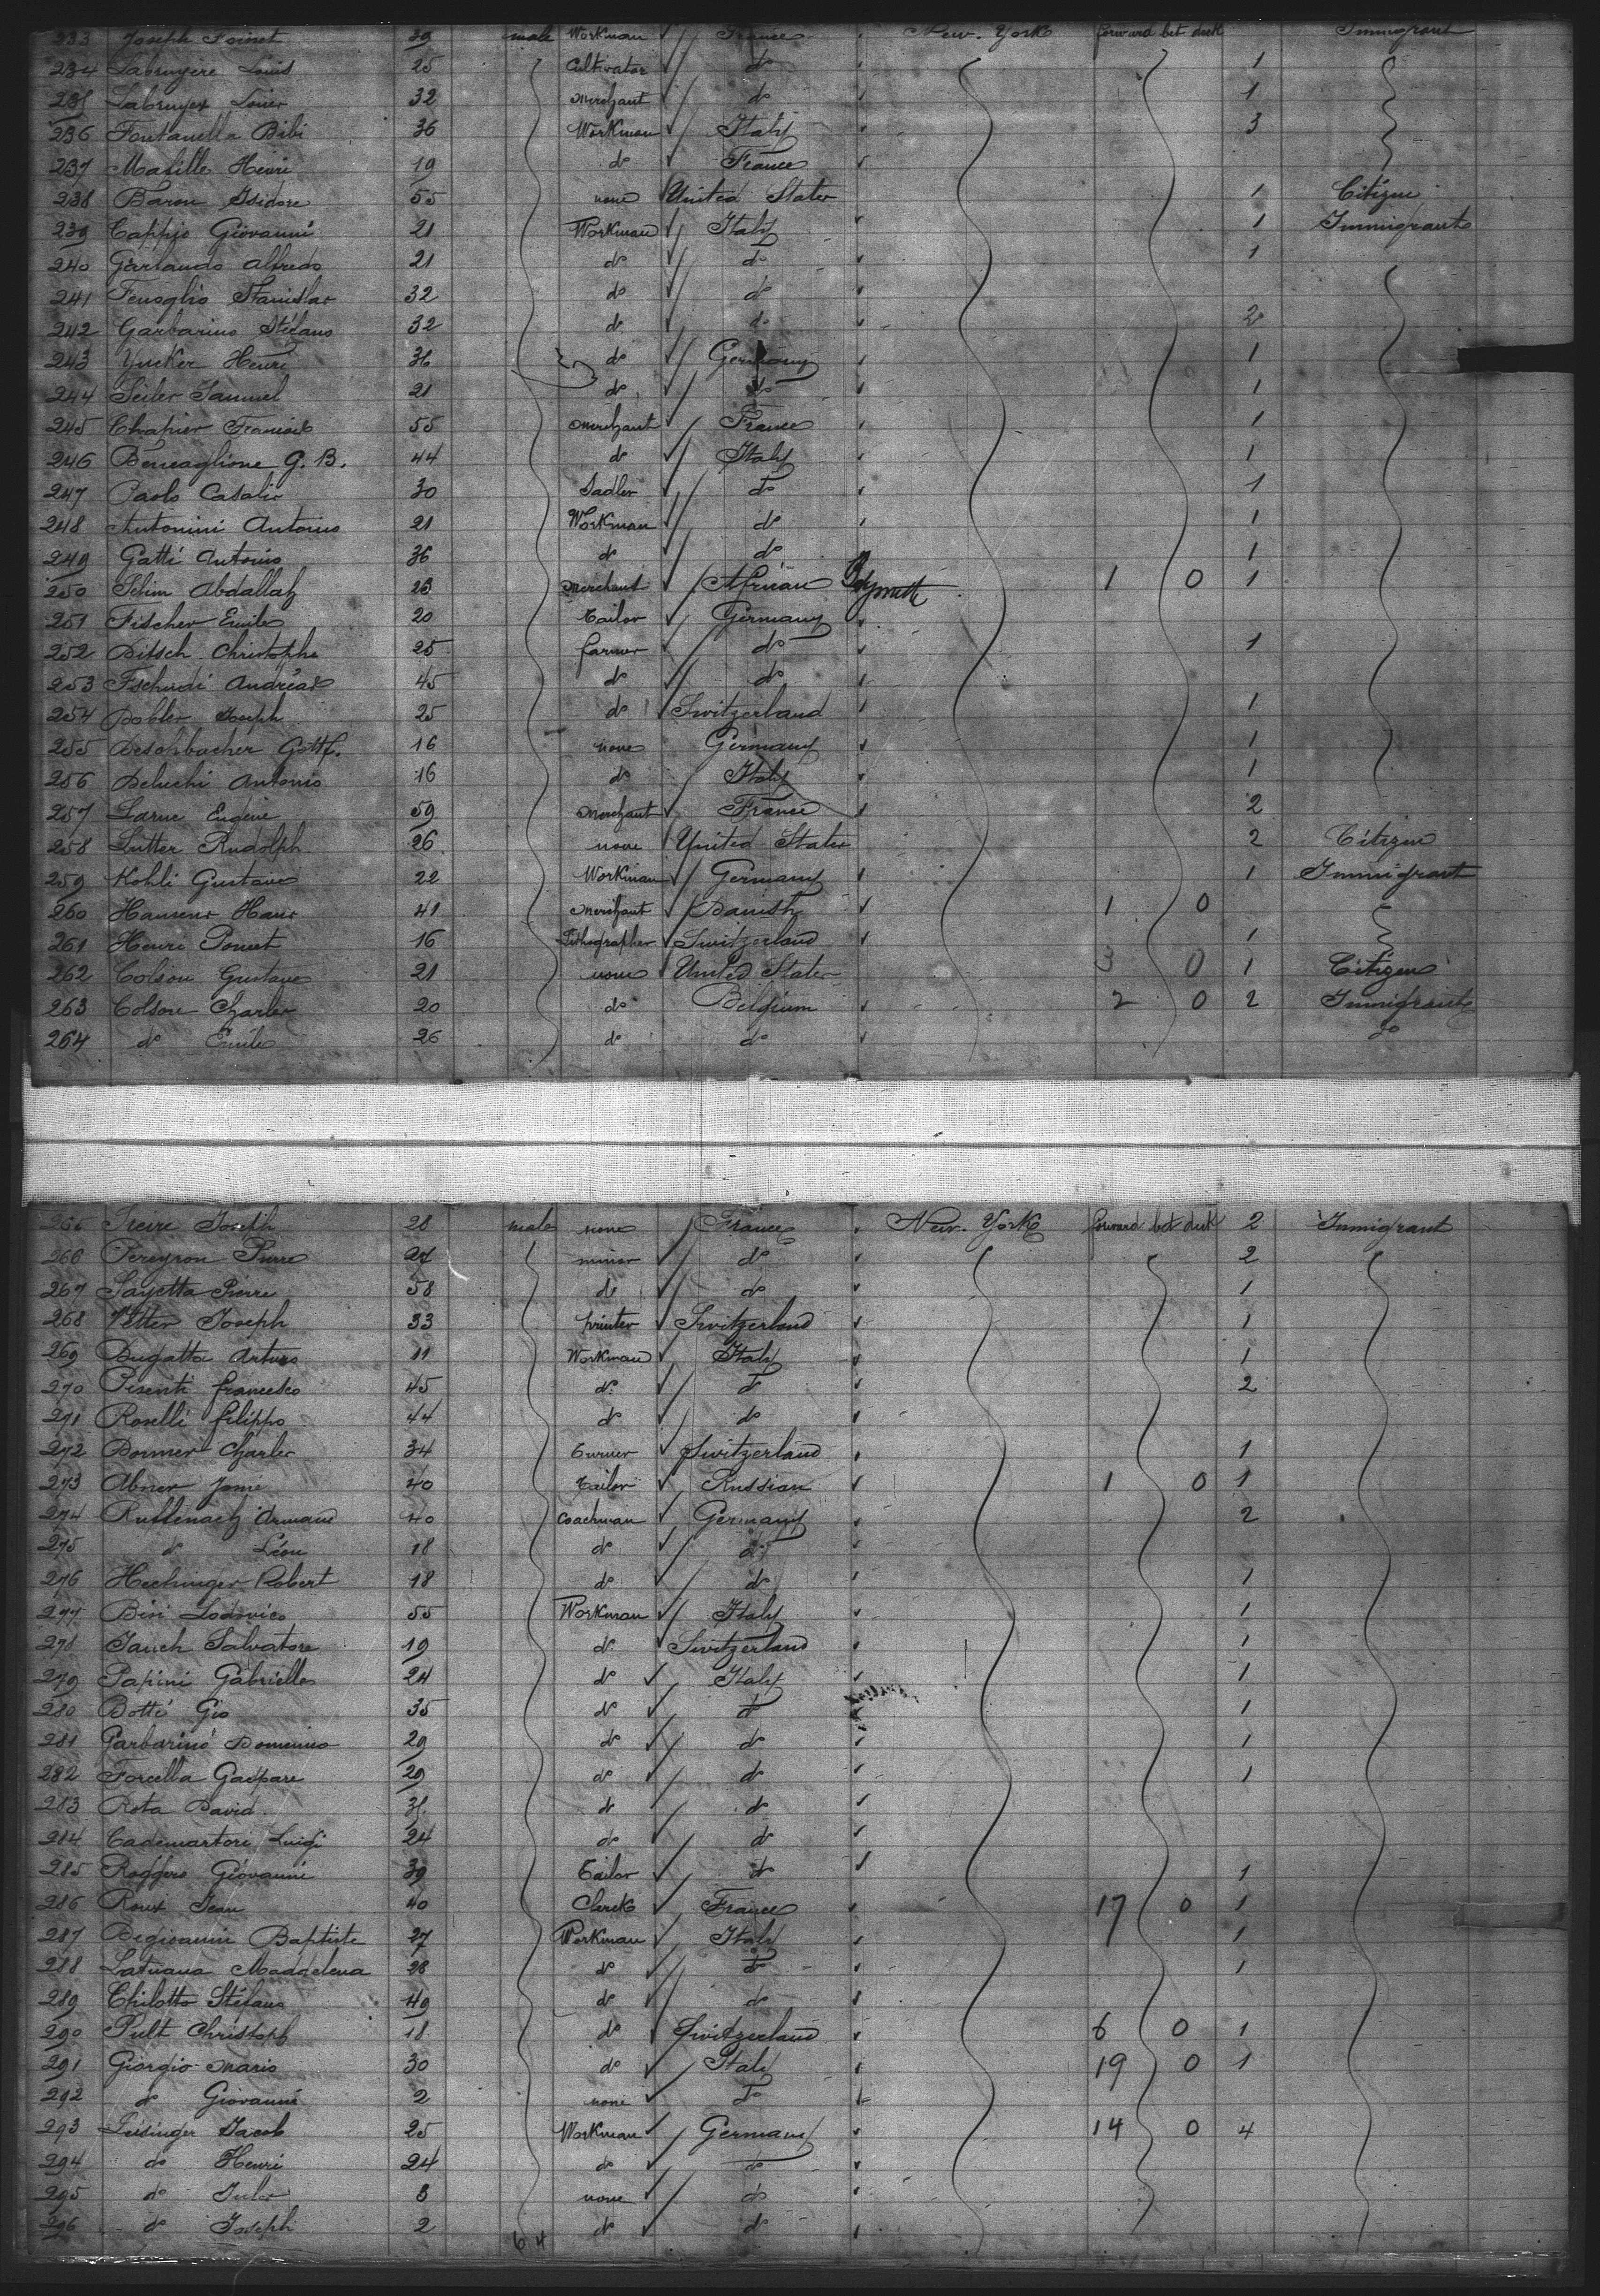 233 Joseph Poinet 39 male Workman France New-York forward bet deck Immigrant
234 Labruyère Louis 25 Cultivator do 1
235 Labruyer Louis 32 Merchant do 1
236 Fontanella Bibi 36 Workman Italy 3
237 Masille Henri 19 do France
238 Baron Isidore 55 none United States 1 Citizen
239 Cappjo Giovanni 21 Workman Italy 1 Immigrant
240 Garlando Alfredo 21 do do 1
241 Fenoglio Stanislas 32 do do
242 Garbarino Stéfano 32 do do 2
243 Yucker Henri 36 do Germany 1
244 Seiler Samuel 21 do do 1
245 Chapier Francois 55 Merchant France 1
246 Bencaglione G. B. 44 do Italy 1
247 Paolo Casalis 30 Sadler do 1
248 Antonini Antonio 21 Workman do 1
249 Gatti Antonio 36 do do 1
250 Selim Abdallah 23 Merchant African 1 0 1
251 Fischer Emile 20 Tailor Germany
252 Ditsch Christophe 25 farmer do 1
253 Tschudi Andréas 45 do do
254 Dobler Joseph 25 do Switzerland 1
255 Aeschbacher Gottf. 16 none Germany 1
256 Deluchi Antonio 16 do Italy 1
257 Larue Eugène 59 Merchant France 2
258 Lutter Rudolph 26 none United States 2 Citizen
259 Kohli Gustave 22 Workman Germany 1 Immigrant
260 Hansens Hans 41 Merchant Danish 1 0
261 Henri Poncet 16 Lithographer Switzerland 1
262 Colson Gustave 21 none United States 3 0 1 Citizen
263 Colson Charles 20 do Belgium 2 0 2 Immigrant
264 do Emile 26 do do do
Joseph 28 male none France New-York forward bet deck 2 Immigrant
266 Pereyron Pierre 27 minor do 2
267 Sayetta Pierre 58 do do 1
268 Vetter Joseph 33 printer Switzerland 1
269 Bugatta Arturo 11 Workman Italy 1
270 Pisenti francesco 45 do do 2
271 Roselli filippo 44 do do
272 Dormer Charles 34 Turner Switzerland 1
273 Abner 40 Tailor Russian 1 0 1
274 Ruffenach Armand 40 Coachman Germany 2
275 do Léon 18 do do
276 Hechinger Robert 18 do do 1
277 Bisi Lodovico 55 Workman Italy 1
278 Jauch Salvatore 19 do Switzerland 1
279 Papini Gabriello 24 do Italy 1
280 Botti Gio 35 do do 1
281 Garbarino Domenico 29 do do 1
282 Forcella Gaspare 29 do do 1
283 Rota David do do
284 Cademartori Luigi 24 do do
285 Roggero Giovanni 39 Tailor do 1
286 Roux Jean 40 Clerck France 17 0 1
287 Degioanni Baptiste 27 Workman Italy 1
288 Latuana Maddelena 28 do do 1
289 Chilotto Stéfano 49 do do
290 Pult Christoph 18 do Switzerland 6 0 1
291 Giorgio Mario 30 do Italy 19 0 1
292 do Giovanni 2 none do
293 Leisinger Jacob 25 Workman Germany 14 0 4
294 do Henri 24 do do
295 do Jules 3 none do
296 do Joseph 2 do do
64